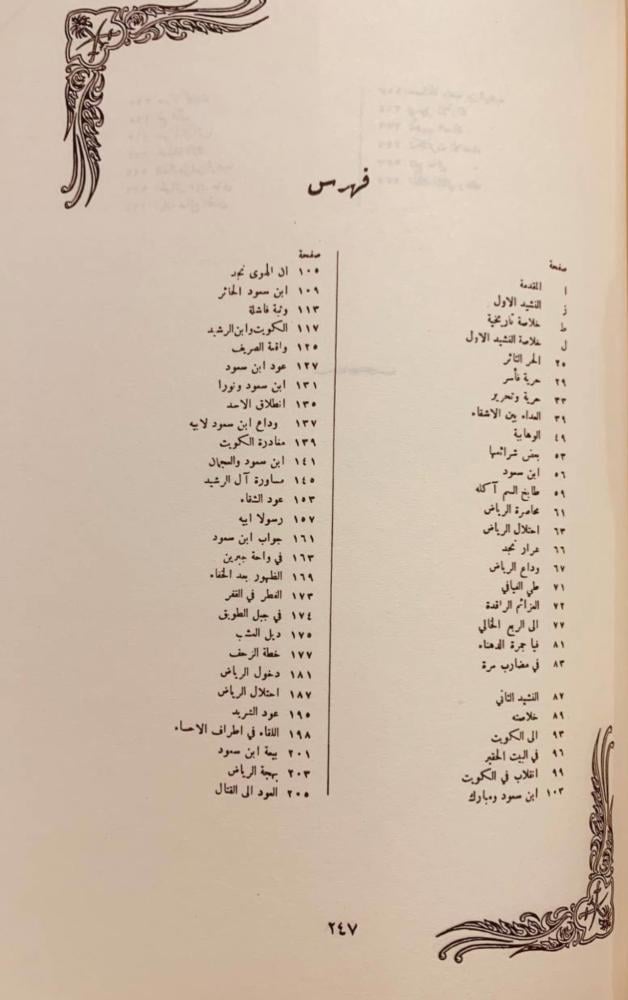 فهرس
صفحة
ا المقدمة
ز النشيد الاول
ط خلاصة تاريخية
ل خلاصة النشيد الاول
٢٥ الحر الثائر
٢٩ حرية فأسر
٣٣ حرية وتحرير
٣٩ العداء بين الاشقاء
٤٩ الوهابية
٥٣ بعض شرائعها
٥٦ ابن سعود
٥٩ طابخ السم آكله
٦١ محاصرة الرياض
٦٣ احتلال الرياض
٦٦ عرار نجد
٦٧ وداع الرياض
٧١ طي الفيافي
٧٢ العزائم الراقدة
٧٧ الى الربع الخالي
٨١ فيا جمرة الدهناء
٨٣ في مضارب مرة
٨٧ النشيد الثاني
٨٩ خلاصته
٩٣ الى الكويت
٩٦ في البيت الحقير
٩٩ انقلاب في الكويت
١٠٣ ابن سعود ومبارك
صفحة
١٠٥ ال الهوى نجد
١٠٩ ابن سعود الحائر
١١٣ وثبة فاشلة
١١٧ الكويت وابن الرشيد
١٢٥ واقعة الصريف
١٢٧ عود ابن سعود
١٣١ ابن سعود ونورا
١٣٥ انطلاق الاسد
١٣٧ وداع ابن سعود لابيه
١٣٩ مغادرة الكويت
١٤١ ابن سعود والعجمان
١٤٥ مساورة آل الرشيد
١٥٣ عود الشقاء
١٥٧ رسولا ابيه
١٦١ جواب ابن سعود
١٦٣ في واحة جبرين
١٦٩ الظهور بعد الخفاء
١٧٣ الفطر في القفر
١٧٤ في جبل الطويق
١٧٥ ديل الشب
١٧٧ خطة الزحف
١٨١ دخول الرياض
١٨٧ احتلال الرياض
١٩٥ عود الشريد
١٩٨ اللقاء في اطراف الاحساء
٢٠١ بيعة ابن سعود
٢٠٣ بهجة الرياض
٢٠٥ العود الى القتال
٢٤٧